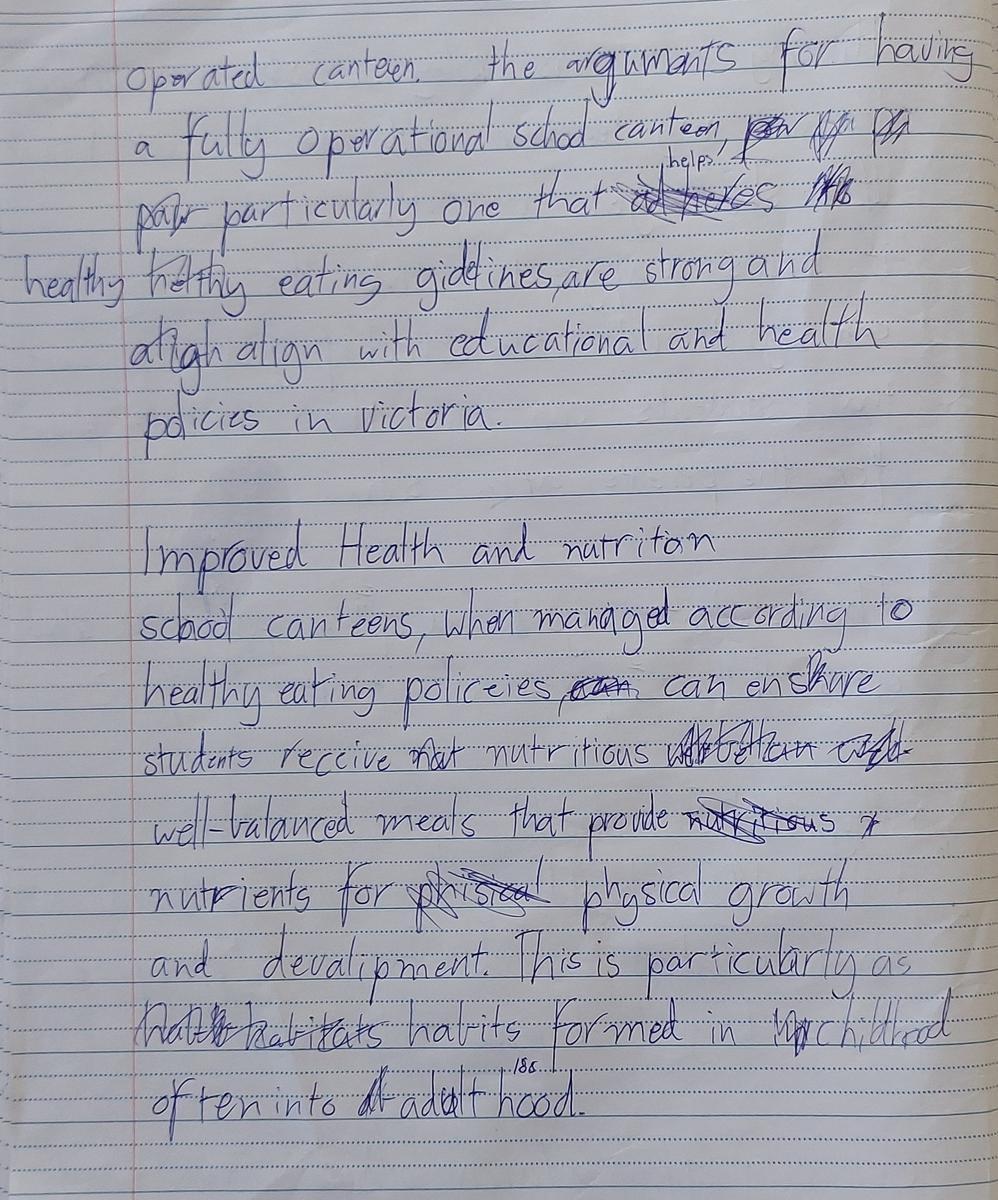 operated canteen. the arguments for having
a fully operational school canteen,
particularly one that helps
healthy eating gidelines, are strong and
align with educational and health
policies in victoria.
Improved Health and nutriton
school canteens, when managed according to
healthy eating policeies, can enshure
students receive nutritious
well-balanced meals that provide
nutrients for physical growth
and devalipment. This is particularly as
habits formed in childhood
often into adulthood.
186